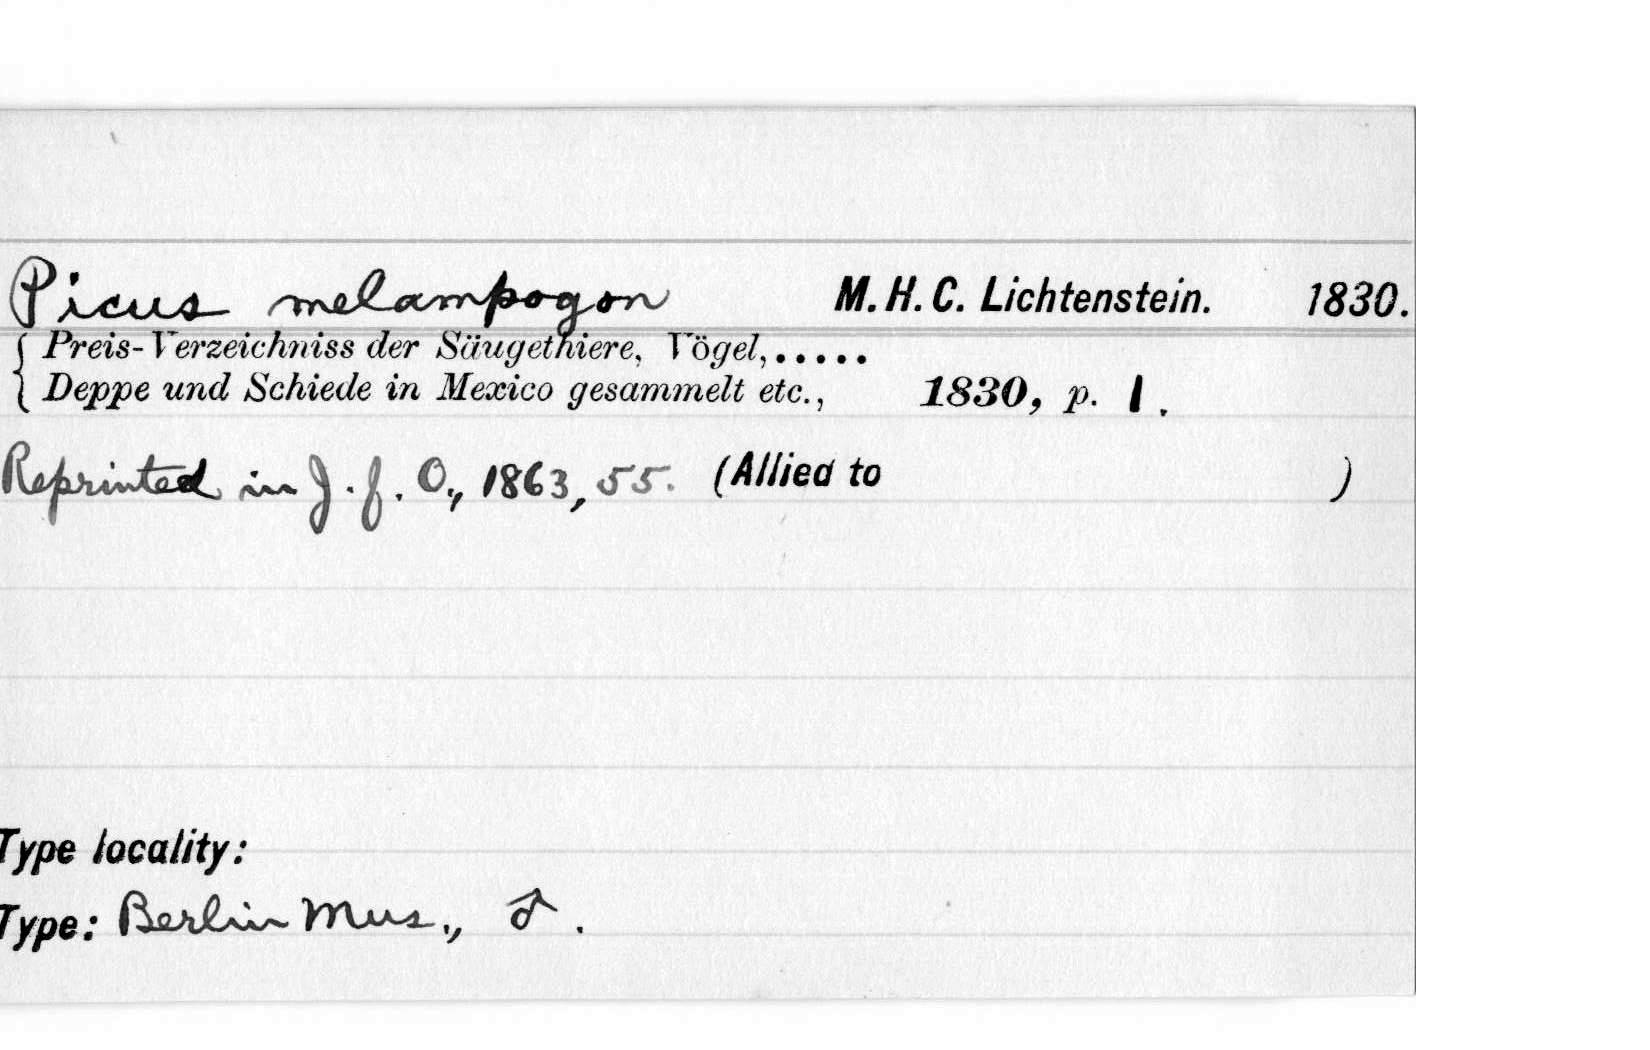 Picus melampogon M. H. C. Lichtenstein. 1830.
Preis-Verzeichniss der Säugethiere, Vögel,.....
Deppe und Schiede in Mexico gesammelt etc., 1830, p. 1.
Reprinted in J. f. O., 1863, 55. (Allied to )
Type locality:
Type: Berlin Mus., ♂.